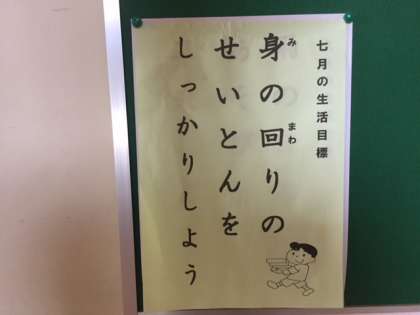 七月の生活目標
身の回りの
せいとんを
しっかりしよう
み
まわ